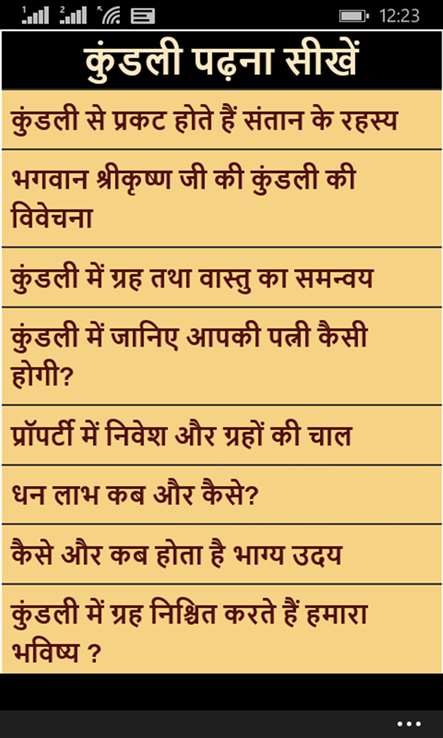 1 2 12:23
कुंडली पढ़ना सीखें
कुंडली से प्रकट होते हैं संतान के रहस्य
भगवान श्रीकृष्ण जी की कुंडली की
विवेचना
कुंडली में ग्रह तथा वास्तु का समन्वय
कुंडली में जानिए आपकी पत्नी कैसी
होगी?
प्रॉपर्टी में निवेश और ग्रहों की चाल
धन लाभ कब और कैसे?
कैसे और कब होता है भाग्य उदय
कुंडली में ग्रह निश्चित करते हैं हमारा
भविष्य ?